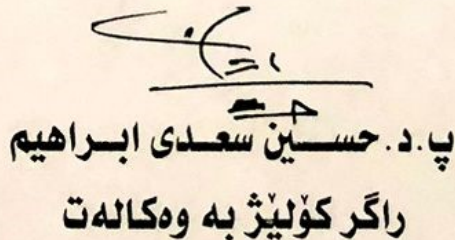 پ.د. حسـين سعـدى ابـراهيم
راگر کۆلێژ به وەکالەت